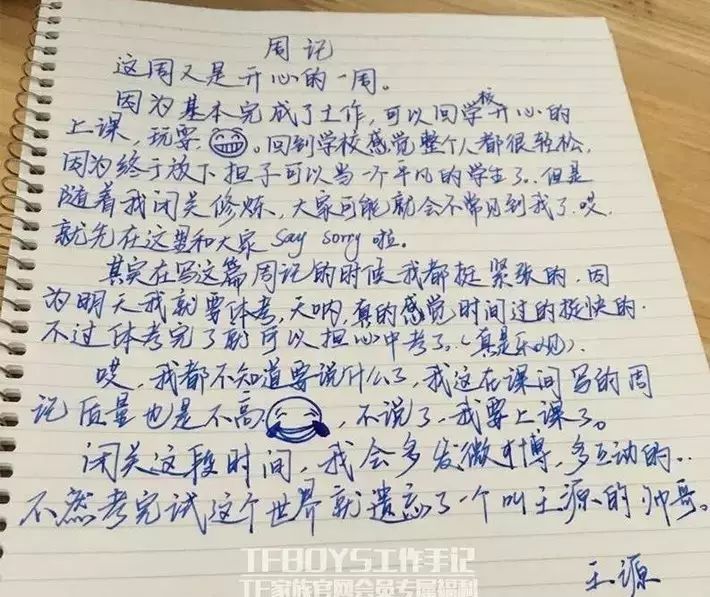 周记
这周又是开心的一周。
因为基本完成了工作,可以回学校开心的
上课,玩耍。回到学校感觉整个人都很轻松,
因为终于放下担子可以当一个平凡的学生了。但是
随着我闭关修炼,大家可能就会不常见到我了。哎,
就先在这里和大家 say sorry 啦。
其实在写这篇周记的时候我都挺紧张的,因
为明天我就要体考,天呐,真的感觉时间过的挺快的.
不过体考完了就可以担心中考了。(真是乐观).
哎,我都不知道要说什么了,我这在课间写的周
记质量也是不高,不说了,我要上课了。
闭关这段时间,我会多发微博,多互动的..
不然考完试这个世界就遗忘了一个叫王源的帅哥。
王源
TFBOYS工作手记
TF家族官网会员专属福利